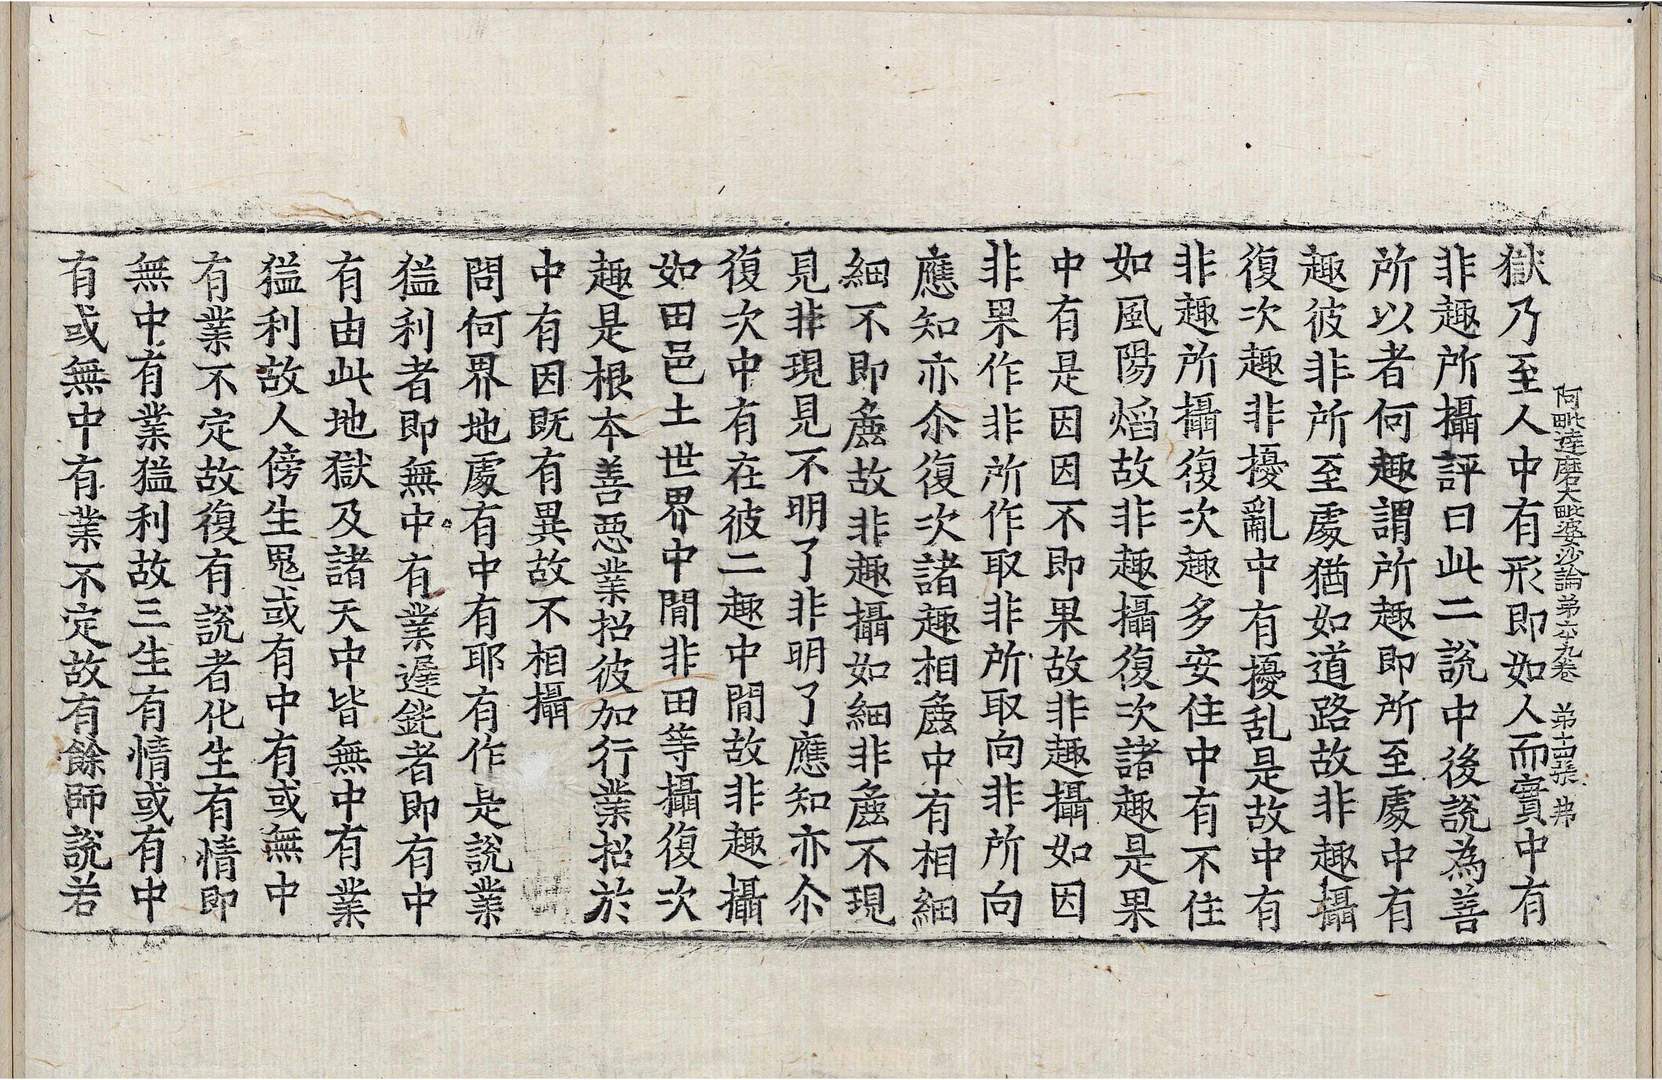 阿毗達磨大毗婆沙論第六十九卷 第十四張 弗
獄乃至人中有形即如人而實中有
非趣所攝評曰此二說中後說為善
所以者何趣謂所趣即所至處中有
趣彼非所至處猶如道路故非趣攝
復次趣非擾亂中有擾乱是故中有
非趣所攝復次趣多安住中有不住
如風陽焰故非趣攝復次諸趣是果
中有是因因不即果故非趣攝如因
非果作非所作取非所取向非所向
應知亦尒復次諸趣相麁中有相細
細不即麁故非趣攝如細非麁不現
見非現見不明了非明了應知亦尒
復次中有在彼二趣中間故非趣攝
如田邑土世界中間非田等攝復次
趣是根本善惡業招彼加行業招於
中有因既有異故不相攝
問何界地處有中有耶有作是說業
猛利者即無中有業遲鈍者即有中
有由此地獄及諸天中皆無中有業
猛利故人傍生鬼或有中有或無中
有業不定故復有說者化生有情即
無中有業猛利故三生有情或有中
有或無中有業不定故有餘師說若